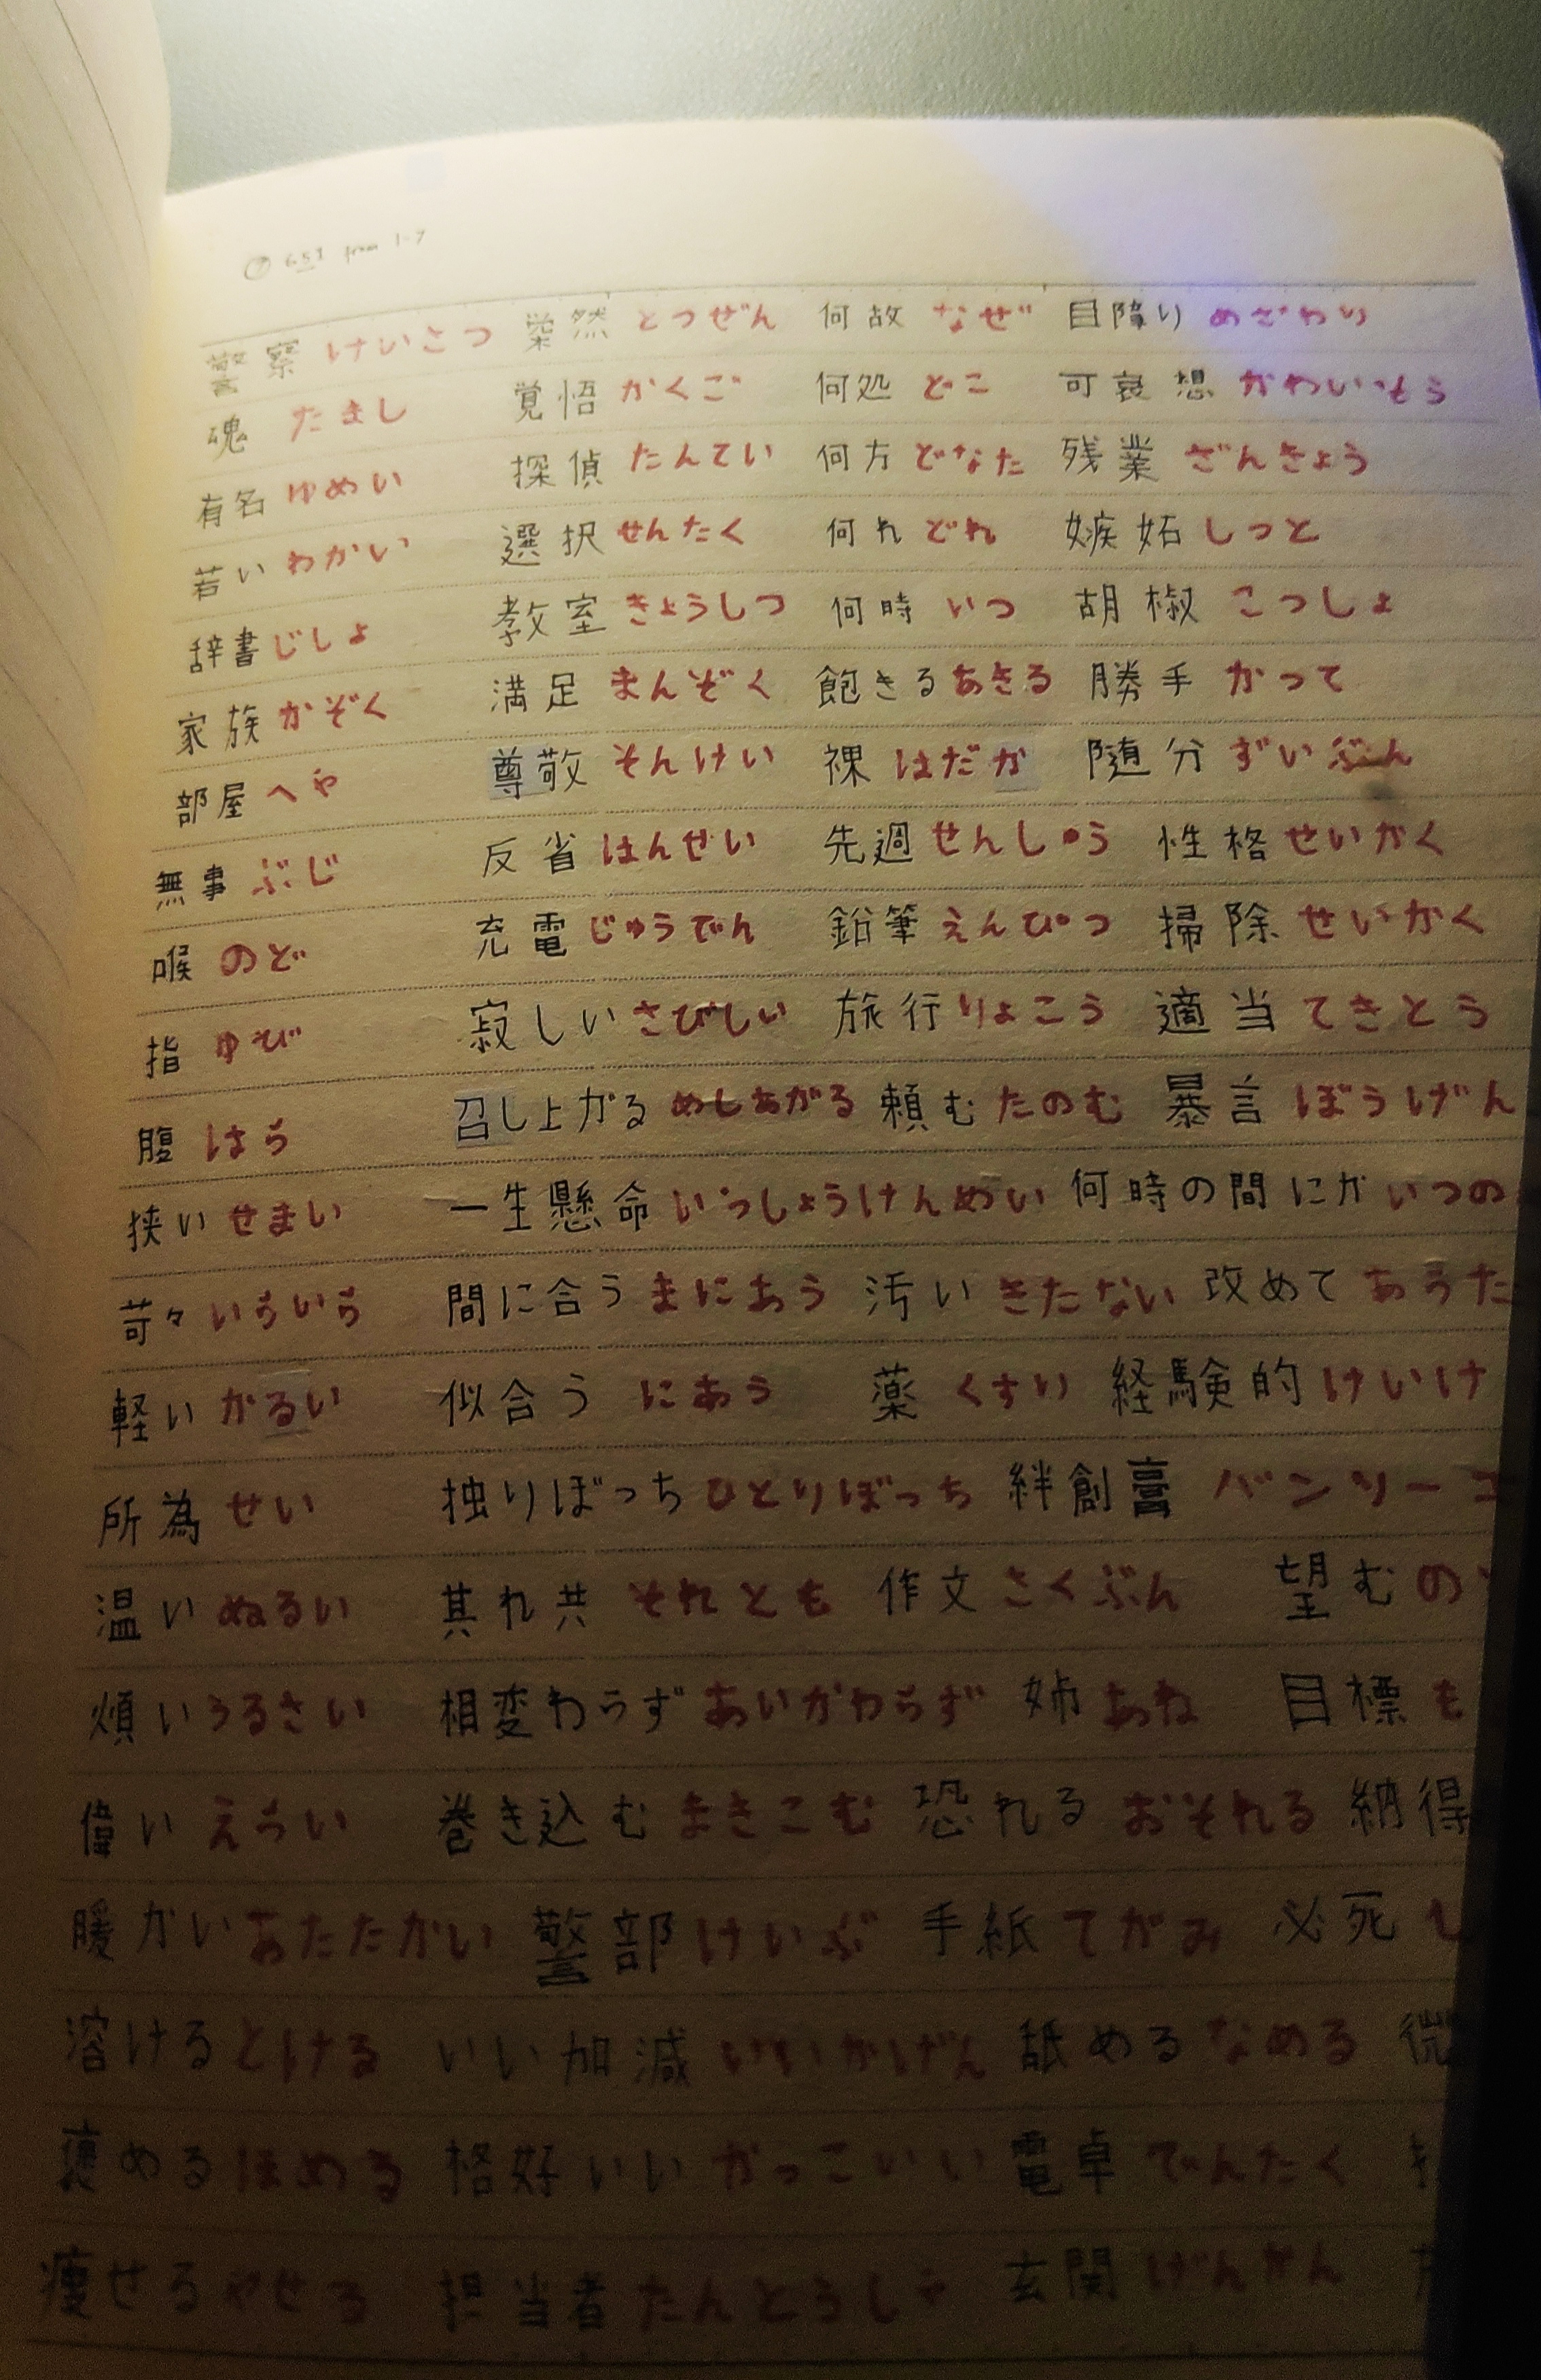 ⑦ 651 from 1-7
警察 けいさつ 突然 とつぜん 何故 なぜ 目障り めざわり
魂 たまし 覚悟 かくご 何処 どこ 可哀想 かわいいそう
有名 ゆめい 探偵 たんてい 何方 どなた 残業 ざんきょう
若い わかい 選択 せんたく 何れ どれ 嫉妬 しっと
辞書 じしょ 教室 きょうしつ 何時 いつ 胡椒 こっしょ
家族 かぞく 満足 まんぞく 飽きる あきる 勝手 かって
部屋 へや 尊敬 そんけい 裸 はだか 随分 ずいぶん
無事 ぶじ 反省 はんせい 先週 せんしゅう 性格 せいかく
喉 のど 充電 じゅうでん 鉛筆 えんぴつ 掃除 せいかく
指 ゆび 寂しい さびしい 旅行 りょこう 適当 てきとう
腹 はら 召し上がる めしあがる 頼む たのむ 暴言 ぼうげん
狭い せまい 一生懸命 いっしょうけんめい 何時の間にか いつの
苛々 いらいら 間に合う まにあう 汚い きたない 改めて あらた
軽い かるい 似合う にあう 薬 くすり 経験的 けいけ
所為 せい 独りぼっち ひとりぼっち 絆創膏 バンソーコ
温い ぬるい 其れ共 それとも 作文 さくぶん 望む の
煩い うるさい 相変わらず あいかわらず 姉 あね 目標 も
偉い えらい 巻き込む まきこむ 恐れる おそれる 納得
暖かい あたたかい 警部 けいぶ 手紙 てがみ 必死 し
溶ける とける いい加減 いいかげん 舐める なめる
褒める ほめる 格好いい かっこいい 電卓 でんたく
痩せる やせる 担当者 たんとうしゃ 玄関 げんかん